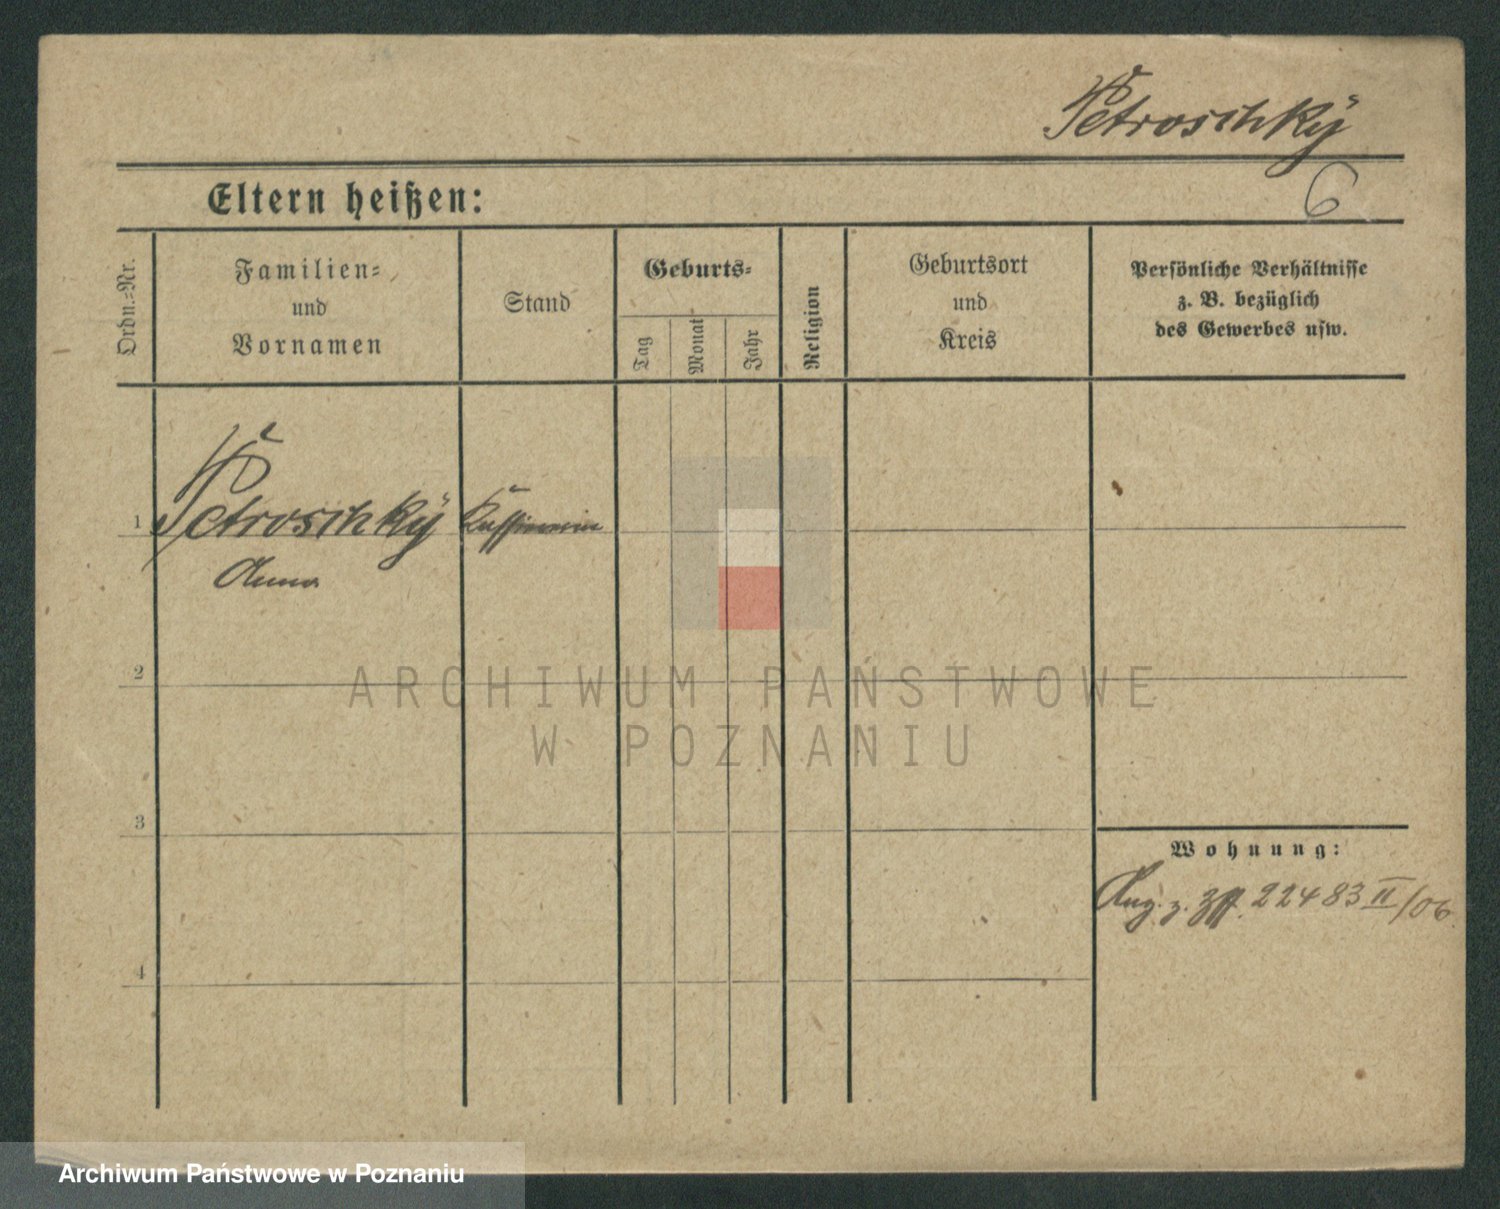 Petroschky
6
Eltern heißen:
Ordn.=Nr.
Familien=
und
Vornamen
Stand
Geburts=
Tag
Monat
Jahr
Religion
Geburtsort
und
Kreis
Persönliche Verhältnisse
z. B. bezüglich
des Gewerbes usw.
1
Petroschky
Anna
Kassirerin
2
3
4
Wohnung:
Ang. z. 22483 II/06
ARCHIWUM PAŃSTWOWE
W POZNANIU
Archiwum Państwowe w Poznaniu